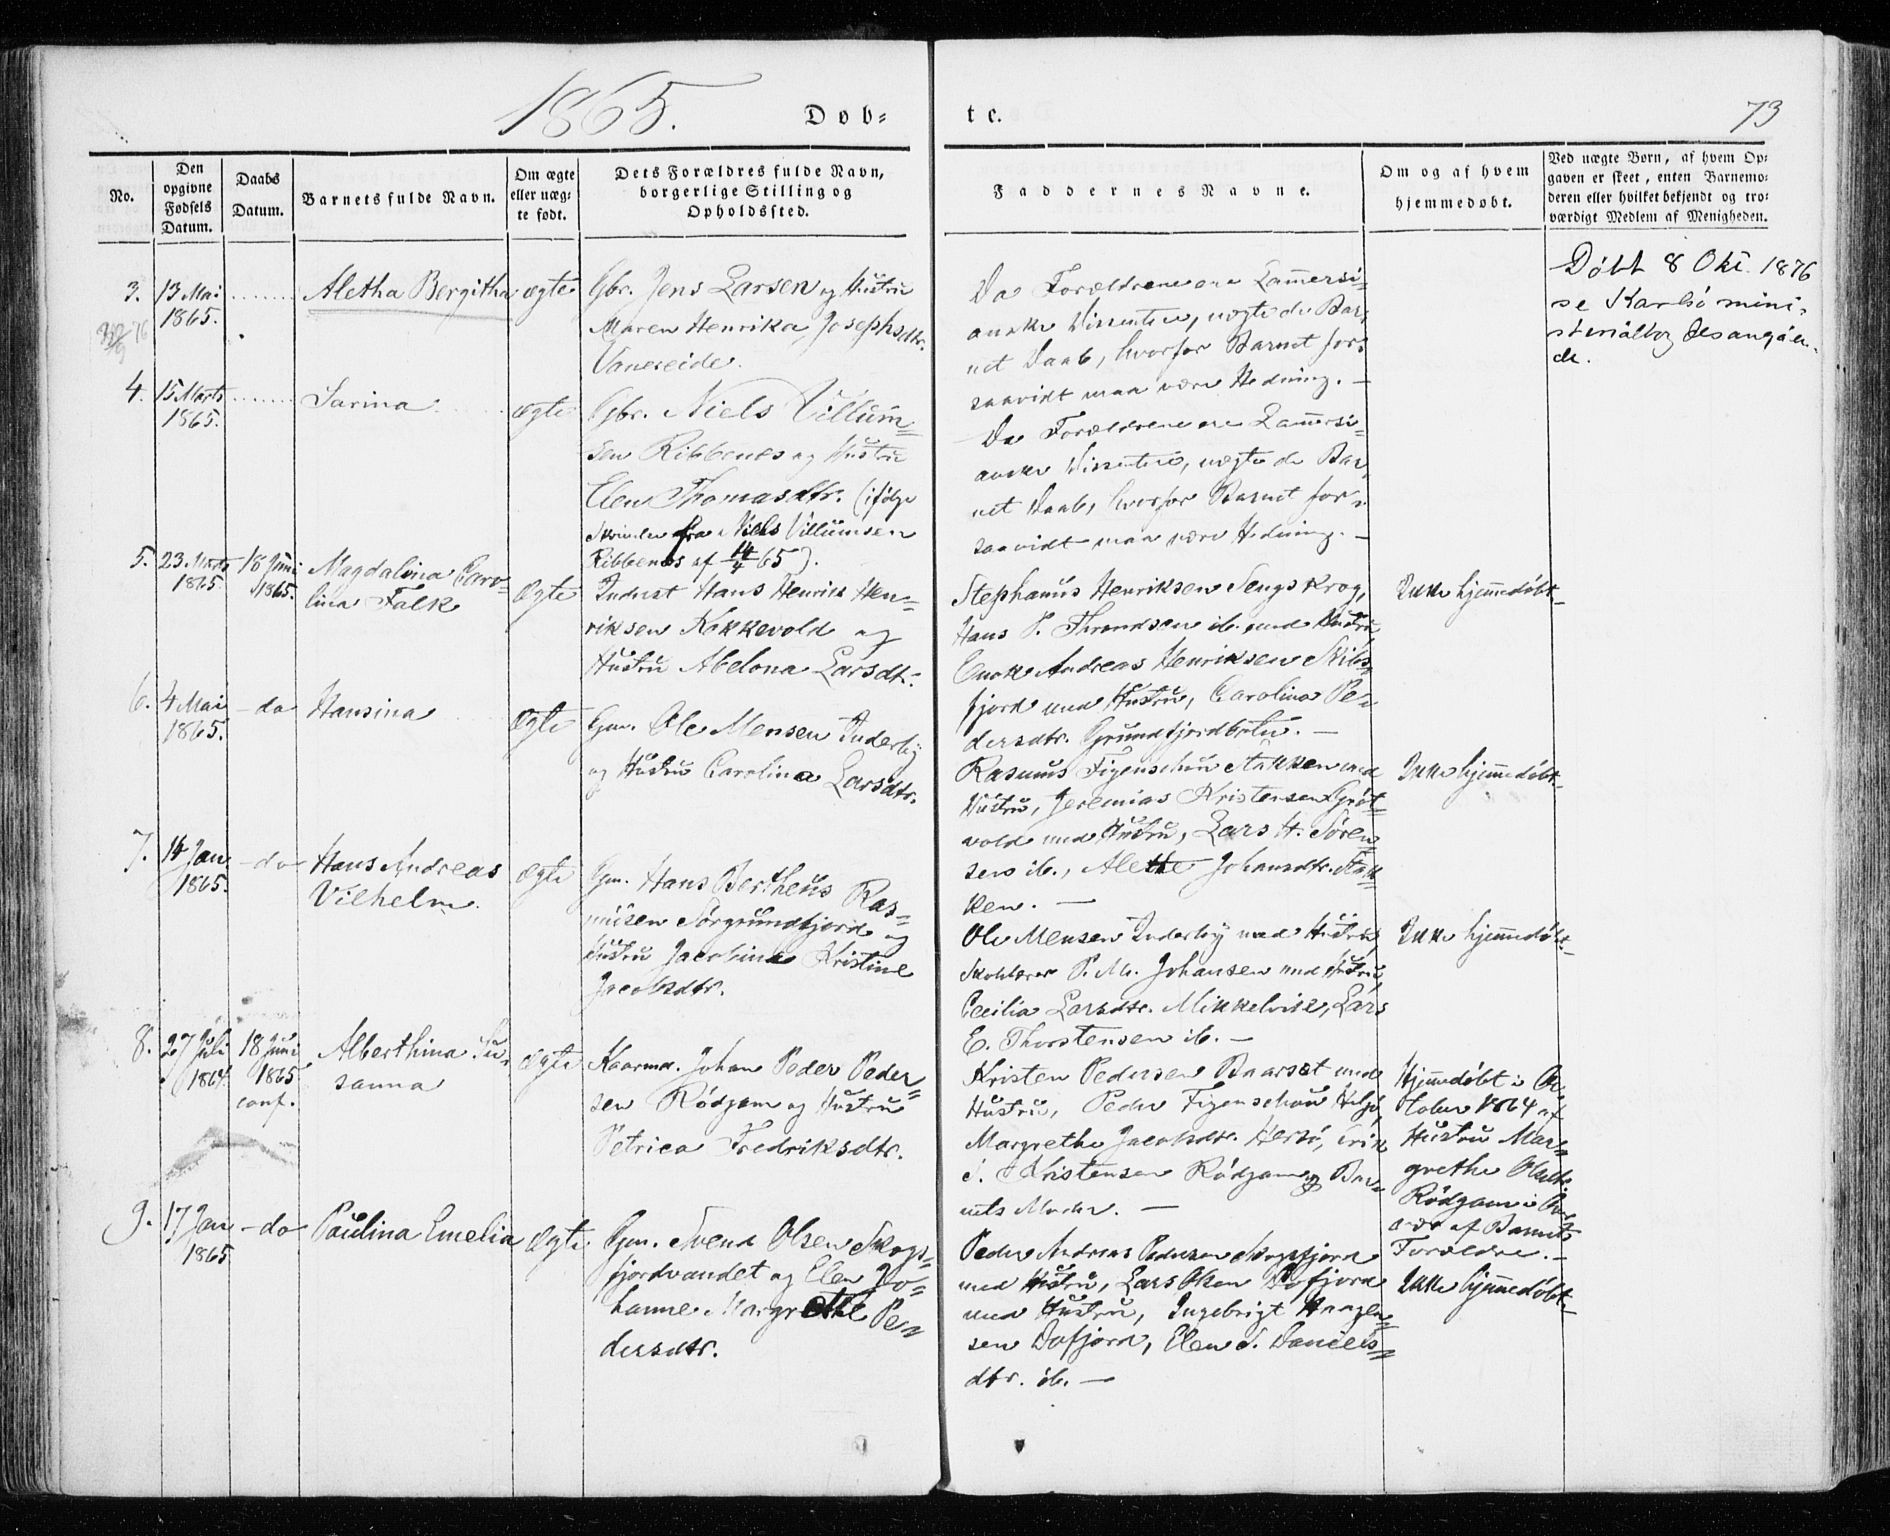 1865.
Døb-
te.
73
No.
Den opgivne Fødsels Datum.
Daabs Datum.
Barnets fulde Navn.
Om ægte eller uæg-te født.
Dets Forældres fulde Navn, borgerlige Stilling og Opholdssted.
Faddernes Navne.
Om og af hvem hjemmedøbt.
Ved uægte Børn, af hvem Op-
gaven er skeet, enten Barnemo-
deren eller hvilket bekjendt og tro-
værdigt Medlem af Menigheden.
3.
13 Mai
1865.
Aletha Bergitha
ægte
Gbr. Jens Larsen og Hustru
Maren Henrika Josephsdtr.
Vanereide.
Da Forældrene ere Lammersi-
anske Dissentere, nægte de Bar-
net Daab, hvorfor Barnet for-
saavidt maa være Hedning. —
Døbt 8 Okt. 1876
se Karlsø mini-
sterialbog desangåen-
de.
4.
15 Marts
1865.
Sarina
ægte
Gbr. Niels Villum-
sen Ribbenes og Hustru
Elen Thomasdtr. (ifølge
Skrivelse fra Niels Villumsen
Ribbenes af 14/4 65).
Da Forældrene ere Lammersi-
anske Dissentere, nægte de Bar-
net Daab, hvorfor Barnet for-
saavidt maa være Hedning. —
5.
23. Marts
1865.
18 Juni
1865.
Magdalina Caro-
lina Falk
Ægte
Inderst Hans Henrik Hen-
riksen Kokkevold og
Hustru Abelona Larsdtr.
Stephanus Henriksen Sengskrog,
Hans P. Throndsen ib. med Hustru,
Enok Andreas Henriksen Skibs-
fjord med Hustru, Carolina Pe-
dersdtr. Grundfjordbotn. —
Ikke hjemmedøbt —
6.
4 Mai
1865.
- do
Hansina
Ægte
Gm. Ole Mensen Inderby
og Hustru Carolina Larsdtr.
Rasmus Figenschou Stakken med
Hustru, Jeremias Kristensen Grøt-
vold med Hustru, Lars H. Søren-
sen ib., Alethe Johansdtr. Stak-
ken. —
Ikke hjemmedøbt. —
7.
14 Jan
1865.
- do
Hans Andreas
Vilhelm.
Ægte
Gm. Hans Bertheus Ras-
musen Sørgrundfjord og
Hustru Jacobina Kristine
Jacobsdtr.
Ole Mensen Inderby med Hustru,
Skolelærer P. M. Johansen med Hustru,
Cecilia Larsdtr. Mikkelvik, Lars
E. Thorstensen ib. —
Ikke hjemmedøbt —
8.
27 Juli
1864
18 Juni
1865
conf.
Alberthina Su-
sanna
Ægte
Kaarmd. Johan Peder Peder-
sen Rødgam og Hustru
Petrica Fredriksdtr.
Kristen Pedersen Baarset med
Hustru, Peder Figenschou Helgø,
Margrethe Jacobsdtr. Hersø, Erik
J. Kristensen Rødgam og Bar-
nets Moder. —
Hjemmedøbt i Oc-
tober 1864 af
Hustru Mar-
grethe Olsdtr.
Rødgam i
af Barnets
Forældre. —
9.
17 Jan
1865
- do
Paulina Emelia
Ægte
Gm. Svend Olsen Skogs-
fjordvandet og Elen Jo-
hanne Margrethe Pe-
dersdtr.
Peder Andreas Pedersen Skogsfjord
med Hustru, Lars Olsen Dofjord
med Hustru, Ingebrigt Haagen-
sen Dofjord, Elen S. Daniels-
dtr. ib. —
Ikke hjemmedøbt —